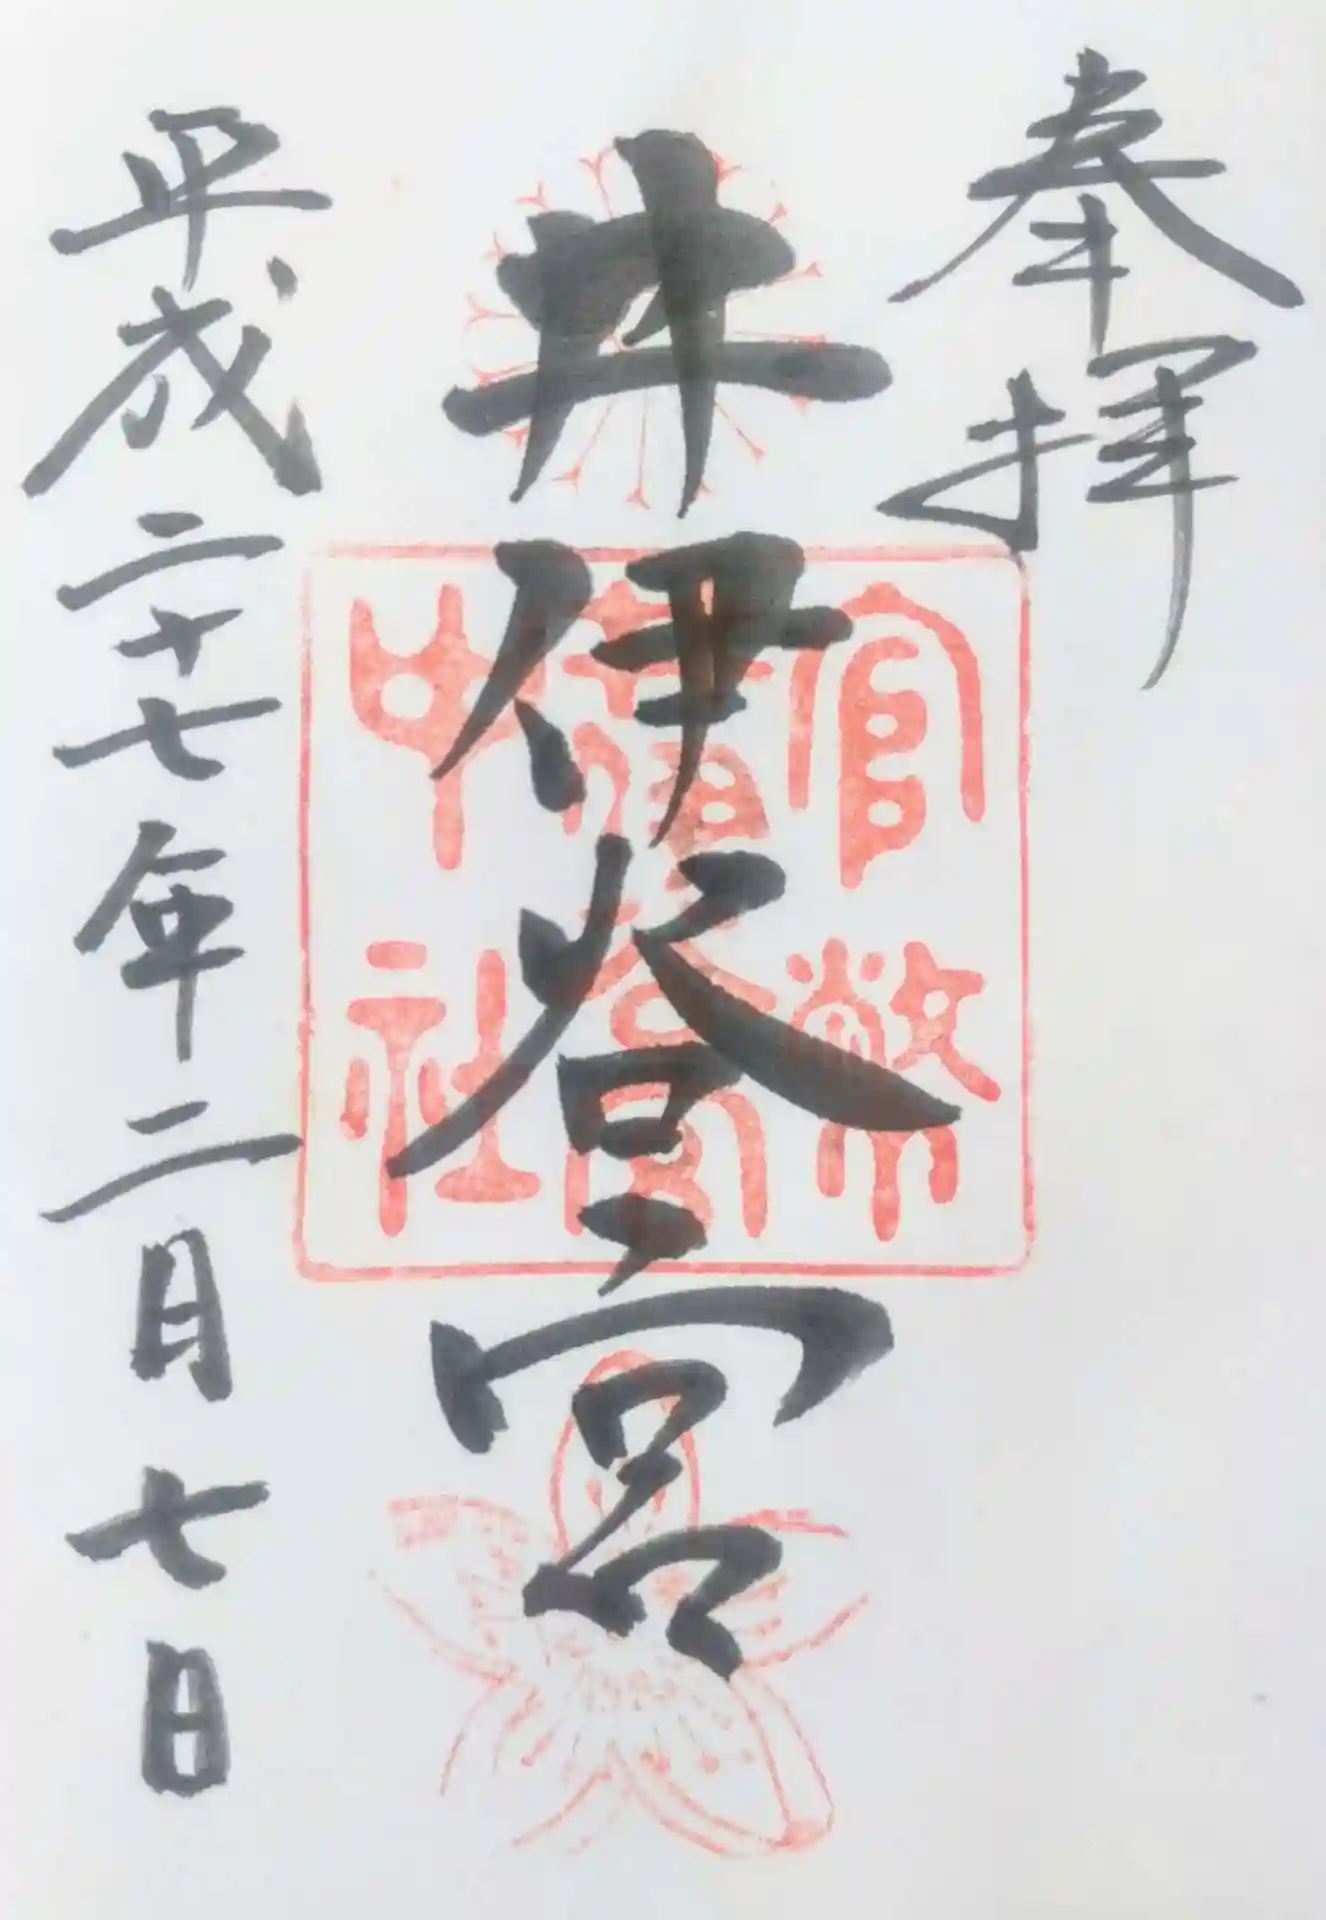 奉拝
井伊谷宮
官幣
井伊谷宮
中社
平成二十七年二月七日